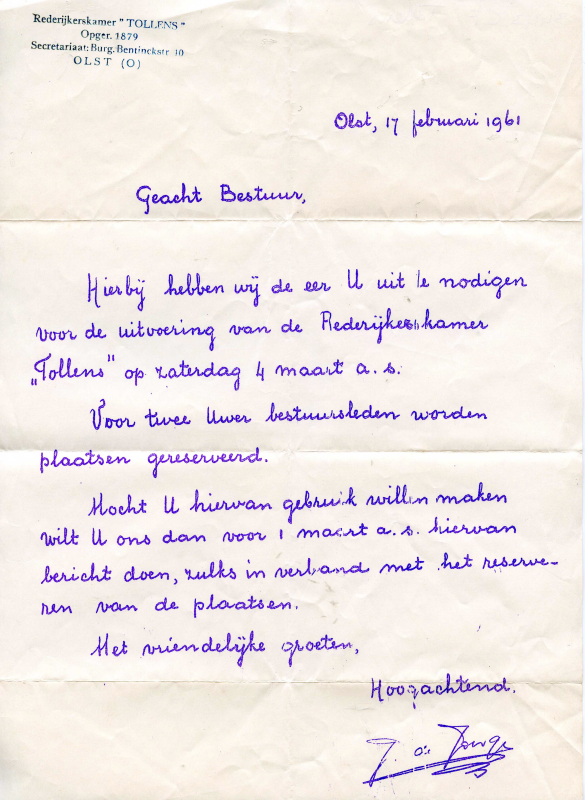 Rederijkerskamer "TOLLENS"
Opger. 1879
Secretariaat: Burg. Bentinckstr. 10
OLST (O)
Olst, 17 februari 1961
Geacht Bestuur,
Hierbij hebben wij de eer U uit te nodigen
voor de uitvoering van de Rederijkerskamer
„Tollens" op zaterdag 4 maart a.s.
Voor twee Uwer bestuursleden worden
plaatsen gereserveerd.
Mocht U hiervan gebruik willen maken
wilt U ons dan voor 1 maart a.s. hiervan
bericht doen, zulks in verband met het reserve-
ren van de plaatsen.
Met vriendelijke groeten,
Hoogachtend.
J. de